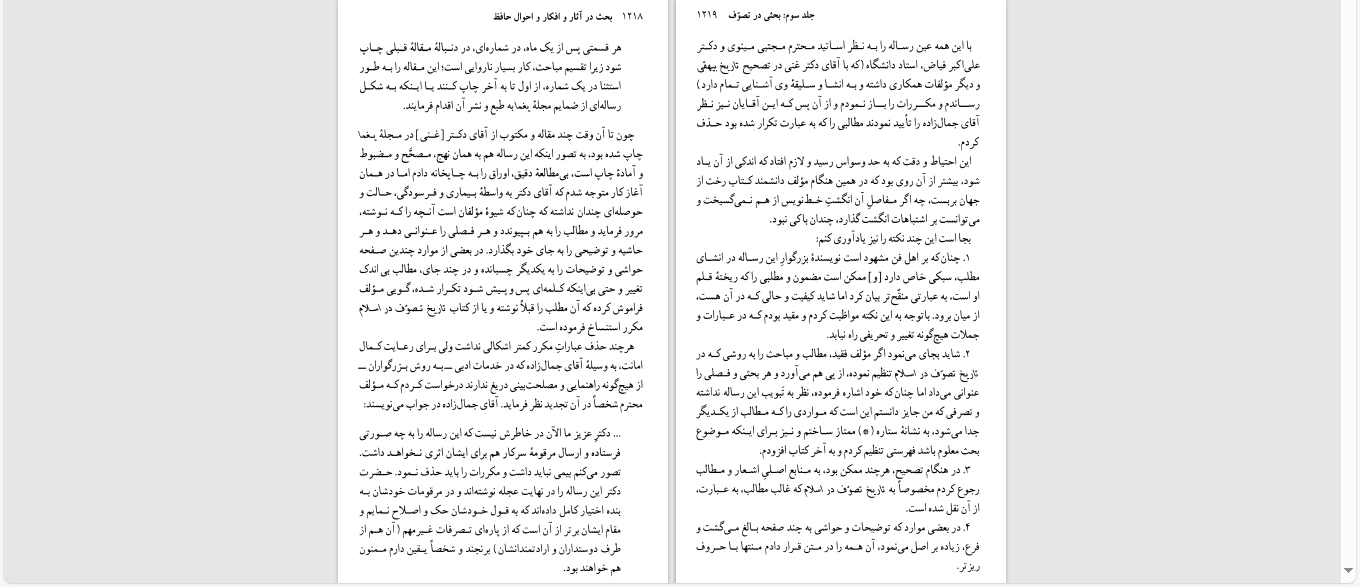 ۱۲۱۸ بحث در آثار و افکار و احوال حافظ
هر قسمتی پس از یک ماه، در شماره‌ای، در دنبالهٔ مقالهٔ قبلی چاپ
شود زیرا تقسیم مباحث، کار بسیار ناروایی است؛ این مقاله را به طور
استثنا در یک شماره، از اول تا به آخر چاپ کنند یا اینکه به شکل
رساله‌ای از ضمایم مجلهٔ یغما به طبع و نشر آن اقدام فرمایند.
چون تا آن وقت چند مقاله و مکتوب از آقای دکتر [غنی] در مجلهٔ یغما
چاپ شده بود، به تصور اینکه این رساله هم به همان نهج، مصحَّح و مضبوط
و آمادهٔ چاپ است، بی‌مطالعهٔ دقیق، اوراق را به چاپخانه دادم اما در همان
آغاز کار متوجه شدم که آقای دکتر به واسطهٔ بیماری و فرسودگی، حالت و
حوصله‌ای چندان نداشته که چنان‌که شیوهٔ مؤلفان است آنچه را که نوشته،
مرور فرماید و مطالب را به هم بپیوندد و هر فصلی را عنوانی دهد و هر
حاشیه و توضیحی را به جای خود بگذارد. در بعضی از موارد چندین صفحه
حواشی و توضیحات را به یکدیگر چسبانده و در چند جای، مطالب بی اندک
تغییر و حتی بی‌اینکه کلمه‌ای پس و پیش شود تکرار شده، گویی مؤلف
فراموش کرده که آن مطلب را قبلاً نوشته و یا از کتاب تاریخ تصوّف در اسلام
مکرر استنساخ فرموده است.
هرچند حذف عباراتِ مکرر کمتر اشکالی نداشت ولی برای رعایت کمال
امانت، به وسیلهٔ آقای جمال‌زاده که در خدمات ادبی ــ به روش بزرگواران ــ
از هیچ‌گونه راهنمایی و مصلحت‌بینی دریغ ندارند درخواست کردم که مؤلف
محترم شخصاً در آن تجدید نظر فرماید. آقای جمال‌زاده در جواب می‌نویسند:
... دکترِ عزیز ما الآن در خاطرش نیست که این رساله را به چه صورتی
فرستاده و ارسال مرقومهٔ سرکار هم برای ایشان اثری نخواهد داشت.
تصور می‌کنم بیمی نباید داشت و مکررات را باید حذف نمود. حضرت
دکتر این رساله را در نهایت عجله نوشته‌اند و در مرقومات خودشان به
بنده اختیار کامل داده‌اند که به قول خودشان حک و اصلاح نمایم و
مقام ایشان برتر از آن است که از پاره‌ای تصرفات غیرمهم (آن هم از
طرف دوستداران و ارادتمندانشان) برنجند و شخصاً یقین دارم ممنون
هم خواهند بود.
جلد سوم: بحثی در تصوّف ۱۲۱۹
با این همه عین رساله را به نظر اساتید محترم مجتبی مینوی و دکتر
علی‌اکبر فیاض، استاد دانشگاه (که با آقای دکتر غنی در تصحیح تاریخ بیهقی
و دیگر مؤلفات همکاری داشته و به انشا و سلیقهٔ وی آشنایی تمام دارد)
رساندم و مکررات را باز نمودم و از آن پس که این آقایان نیز نظر
آقای جمال‌زاده را تأیید نمودند مطالبی را که به عبارت تکرار شده بود حذف
کردم.
این احتیاط و دقت که به حد وسواس رسید و لازم افتاد که اندکی از آن یاد
شود، بیشتر از آن روی بود که در همین هنگام مؤلف دانشمند کتاب رخت از
جهان بربست، چه اگر مفاصلِ آن انگشتِ خط‌نویس از هم نمی‌گسیخت و
می‌توانست بر اشتباهات انگشت گذارد، چندان باکی نبود.
بجا است این چند نکته را نیز یادآوری کنم:
۱. چنان‌که بر اهل فن مشهود است نویسندهٔ بزرگوارِ این رساله در انشای
مطلب، سبکی خاص دارد [و] ممکن است مضمون و مطلبی را که ریختهٔ قلم
او است، به عبارتی منقّح‌تر بیان کرد اما شاید کیفیت و حالی که در آن هست،
از میان برود. با توجه به این نکته مواظبت کردم و مقید بودم که در عبارات و
جملات هیچ‌گونه تغییر و تحریفی راه نیابد.
۲. شاید بجای می‌نمود اگر مؤلف فقید، مطالب و مباحث را به روشی که در
تاریخ تصوّف در اسلام تنظیم نموده، از پی هم می‌آورد و هر بحثی و فصلی را
عنوانی می‌داد اما چنان‌که خود اشاره فرموده، نظر به تبویب این رساله نداشته
و تصرفی که من جایز دانستم این است که مواردی را که مطالب از یکدیگر
جدا می‌شود، به نشانهٔ ستاره (*) ممتاز ساختم و نیز برای اینکه موضوع
بحث معلوم باشد فهرستی تنظیم کردم و به آخر کتاب افزودم.
۳. در هنگام تصحیح، هرچند ممکن بود، به منابع اصلیِ اشعار و مطالب
رجوع کردم مخصوصاً به تاریخ تصوّف در اسلام که غالب مطالب، به عبارت،
از آن نقل شده است.
۴. در بعضی موارد که توضیحات و حواشی به چند صفحه بالغ می‌گشت و
فرع، زیاده بر اصل می‌نمود، آن همه را در متن قرار دادم منتها با حروف
ریزتر.